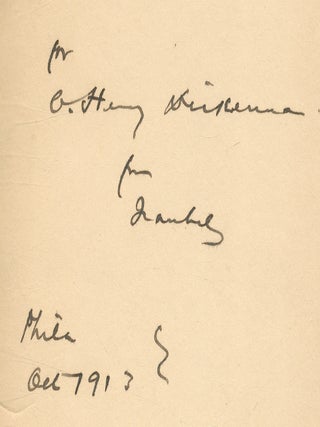 for
C. Henry Dickerman
from
Traubel
Phila
Oct 7 1913